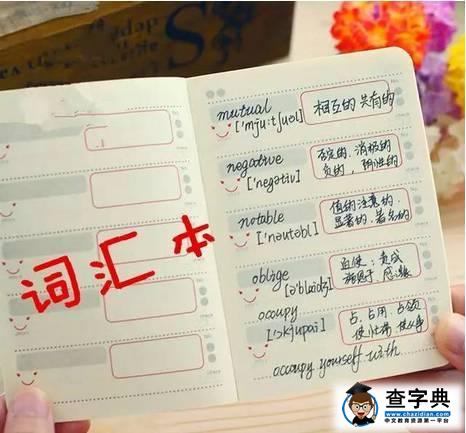 词汇本
mutual
['mju:tʃuəl]
相互的 共有的
negative
['negətiv]
否定的、消极的
负的，阴性的
notable
['nəutəbl]
值的注意的
显著的、著名的
oblige
[ə'blaidʒ]
迫使；责成
occupy
['ɔkjupai]
占、占用、占领
occupy yourself with
查字典
www.chazidian.com
中文教育资源第一平台